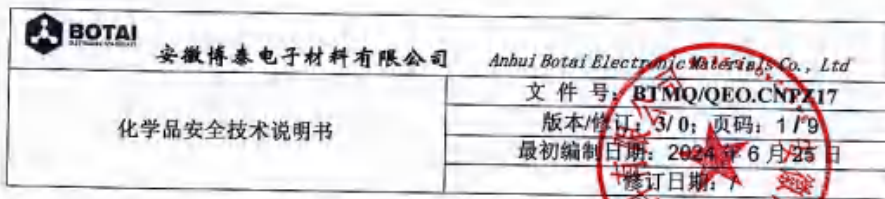 BOTAI
安徽博泰电子材料有限公司
Anhui Botai Electronic Materials Co., Ltd
文 件 号: BTMQ/QEO.CNPZ17
化学品安全技术说明书
版本/修订: 3/ 0; 页码: 1 / 9
最初编制日期: 2024 年 6 月 25 日
修订日期: /